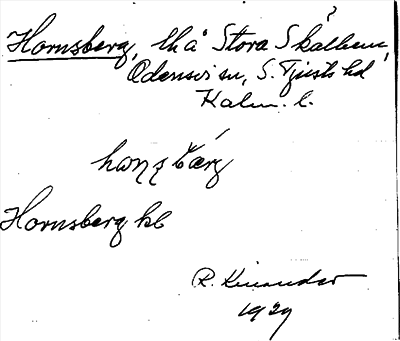 Hornsberg, th å Stora Skälhem,
Odensvi sn, S. Tjusts hd
Kalm. l.
Hornsberg hb
R. Kinander
1929